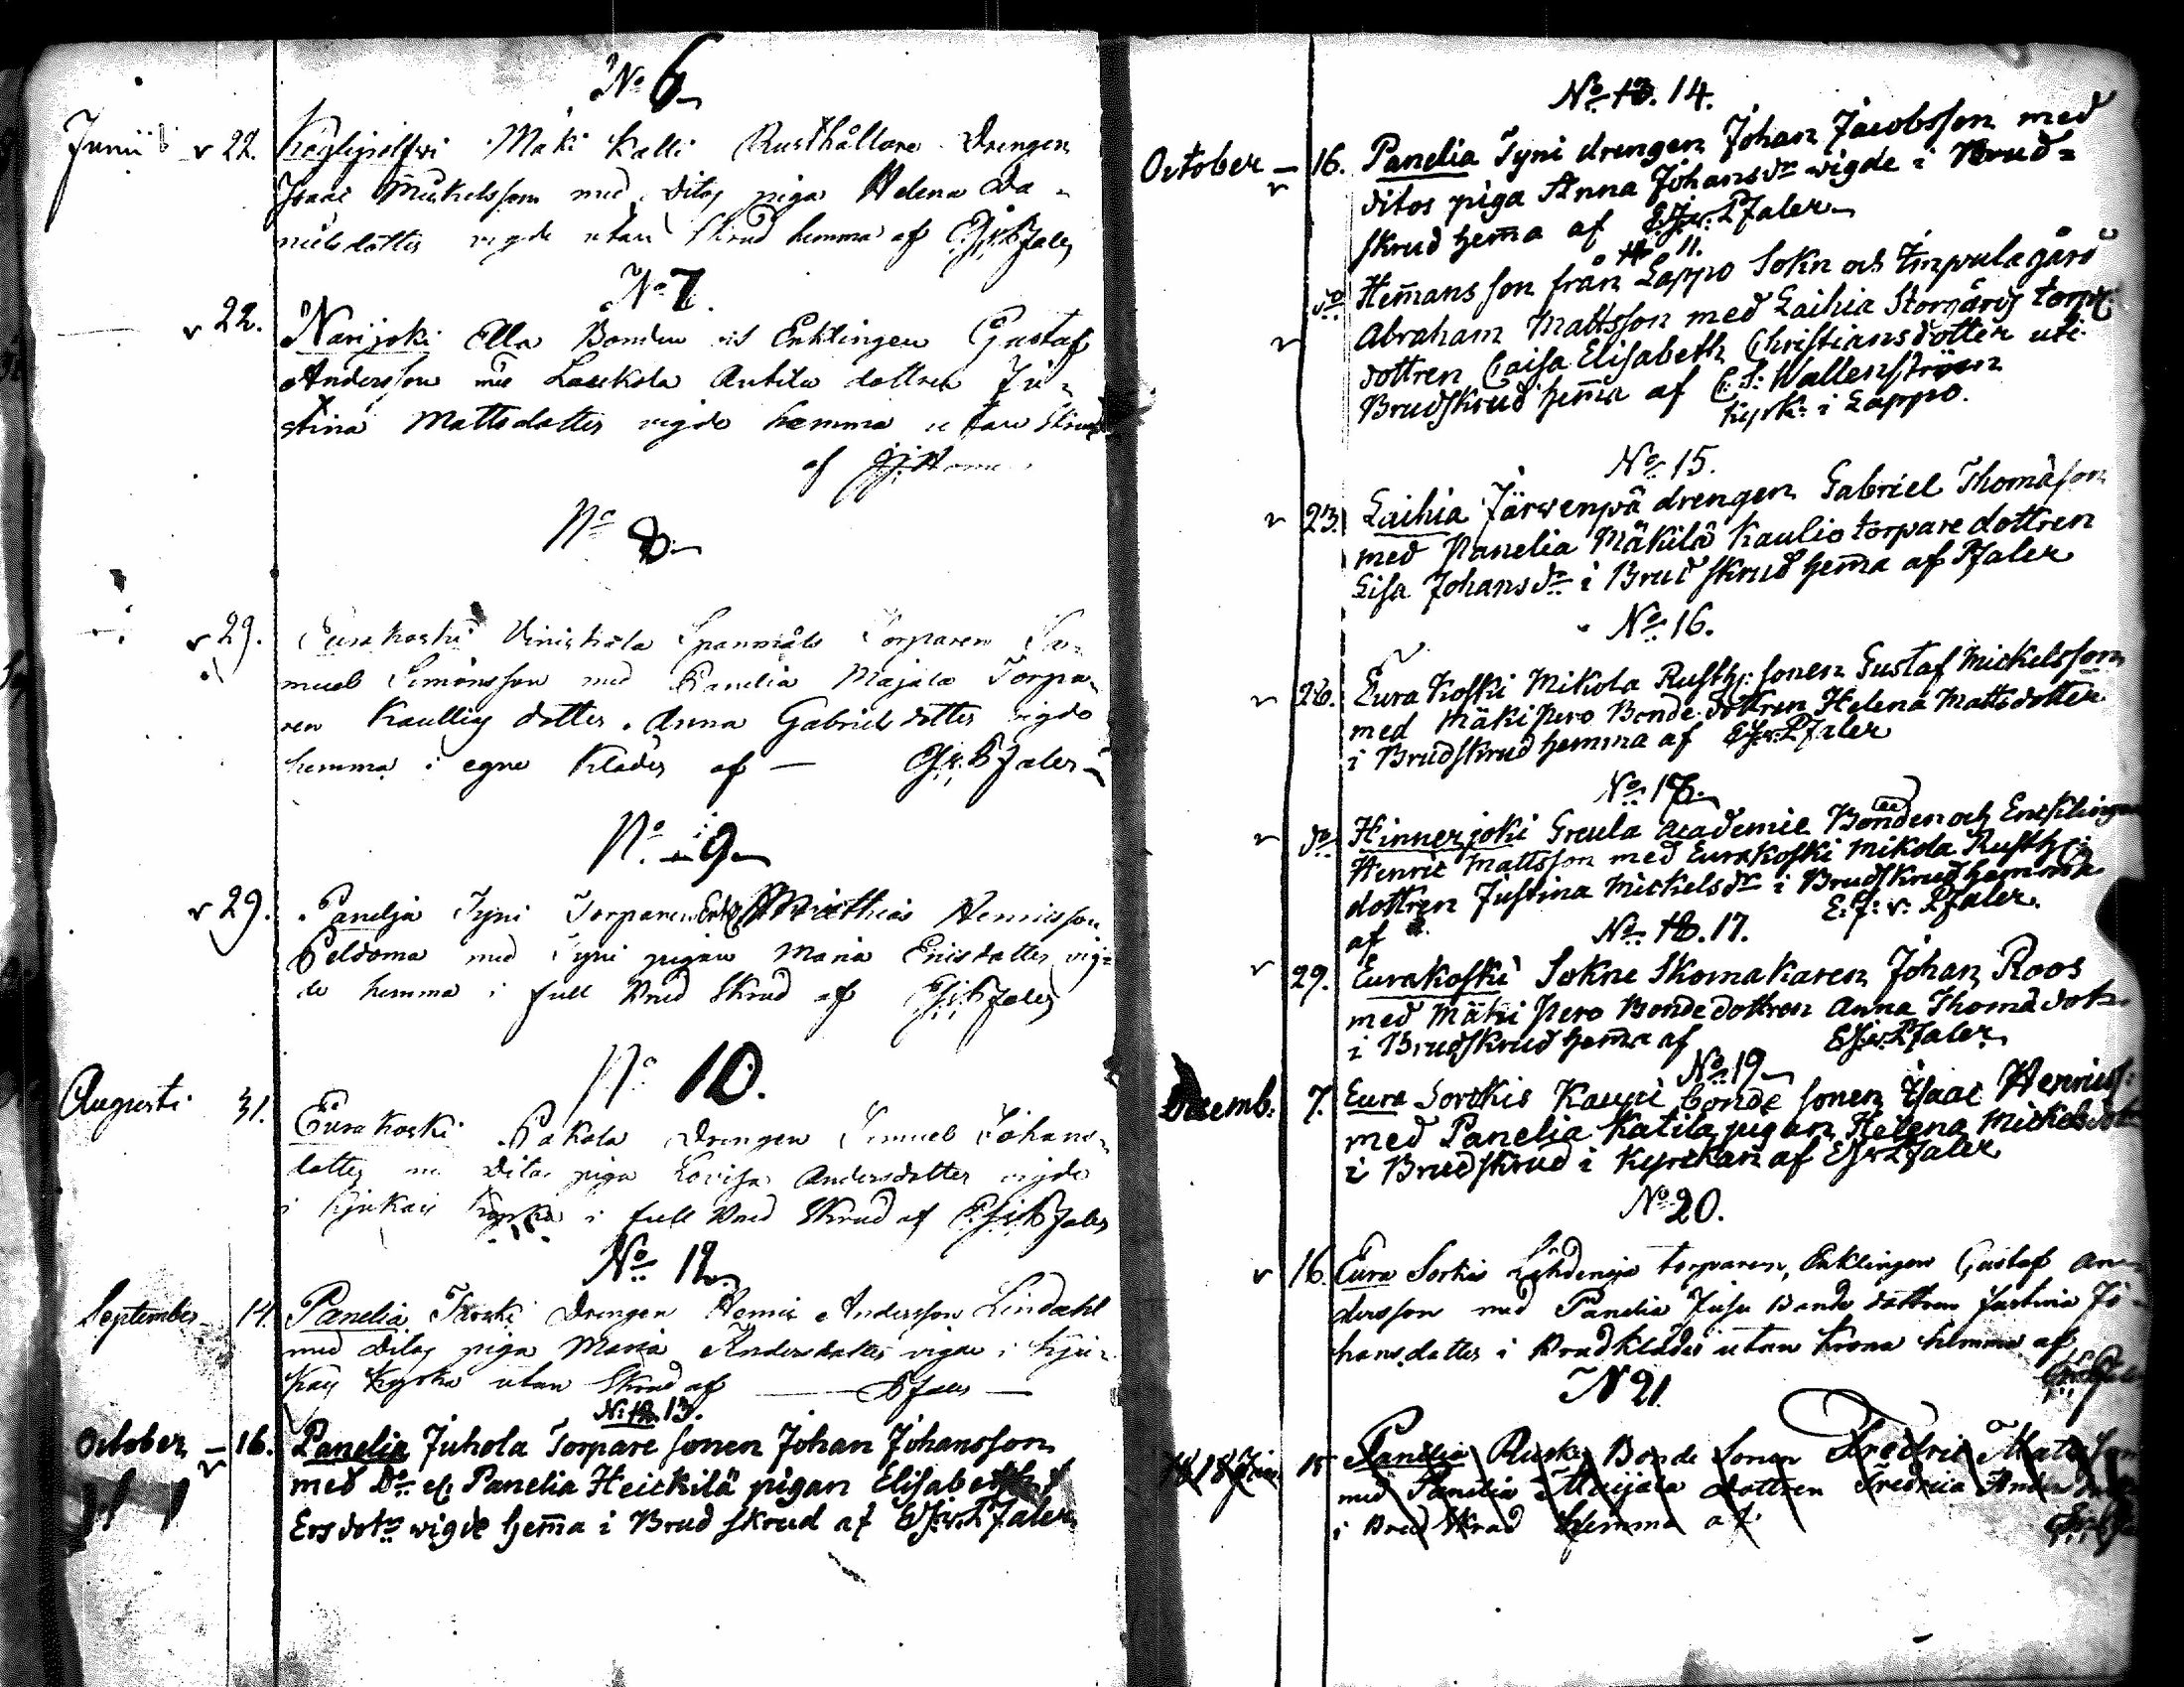 No 6
Junii 22. Köyliypolfvi Mäki Kalli Rusthållare Drengen
Isaac Mickelsson med Ditos piga Helena Da-
nielsdotter vigde utan Skrud hemma af E:J:v:Pfaler
No 7.
22. Narijoki Ella Bonden och Enklingen Gustaf
Andersson med Lauckola Antila dottren Ju-
stina Mattsdotter vigde hemma utan Skrud
af
No 8.
29. Eurakoski Spanmåls Torparen Sa-
muel Simonsson med Panelia Majala Torpa-
ren Kaullis dotter Anna Gabrielsdotter vigde
hemma i egne Kläder af — E:J:v:Pfaler
No 9
29. Panelja Tyni Torparen Enkl: Mathias Henricsson
Peldoma med Tyni pigan Maria Ericsdotter vig-
de hemma i full Brud Skrud af E:J:v:Pfaler
No 10.
Augusti 31. Eurakoski Pakola Drengen Samuel Johans-
dotter med Ditos piga Lovisa Andersdotter vigde
i Kjukais Kyrka i full Brud Skrud af E:J:v:Pfaler
No 12.
September 14. Panelia Drengen Henric Andersson Lindahl
med Ditos piga Maria Andersdotter vigde i Kju-
kais Kyrka utan Skrud af — Pfaler —
No 12 13.
October — 16. Panelia Juhola Torpare sonen Johan Johansson
med Do el Panelia Heickilä pigan Elisabeth
Ersdotr wigde hem̄a i Brud skrud af E:J:v:Pfaler
No 13. 14.
October — 16. Panelia Tyni drengen Johan Jacobsson med
ditos piga Anna Johansdr wigde i Brud=
skrud hem̄a af E:J:v:Pfaler
11.
do Hem̄ansson från Lappo Sokn och Impula gård
Abraham Mattsson med Laihia Storgårds torp:
dottren Caisa Elisabeth Christiansdotter uti
Brudskrud hem̄a af C:S: Wallenström
Kyrk: i Lappo.
No 15.
23. Laihia Järwenpä drengen Gabriel Thomasson
med Panelia Mäkilä Kaulio torpare dottren
Lisa Johansdr i Brud skrud hem̄a af Pfaler
No 16.
26. Eura Koski Mikola Rusth: sonen Gustaf Mickelsson
med Mäki Pero Bonde dottren Helena Mattsdotter
i Brudskrud hemma af E:J:v:Pfaler
No 17
do Hinnerjoki Greula academie Bonden och Encklingen
Henric Mattsson med Eurakoski Mikola Rusth:
dottren Justina Mickelsdr i Brudskrud hemma
af E:J:v:Pfaler.
No 18. 17.
29. Eurakoski Sokne Skomakaren Johan Roos
med Mäki Pero Bonde dottren Anna Thomädotr
i Brudskrud hem̄a af E:J:v:Pfaler
No 19
Decemb: 7. Eura Sorkis Kauri Bonde sonen Isaac Henricss:
med Panelia Katila pigan Helena Mickelsdotr
i Brudskrud i Kyrckan af E:J:v:Pfaler
No 20.
16. Eura Sorkis Lähdenoja torparen, Enklingen Gustaf An-
dersson med Panelia Jusu Bonde dottren Justina Jo-
hansdotter i Brudkläder utan Krona hemma af
E:J:v:Pfaler
N 21.
1818 Jan 15 Panelia Ruski Bonde Sonen Fredric Matsson
med Panelia Maijala dottren Fredrica Anders
i Brud Skrud Hemma af